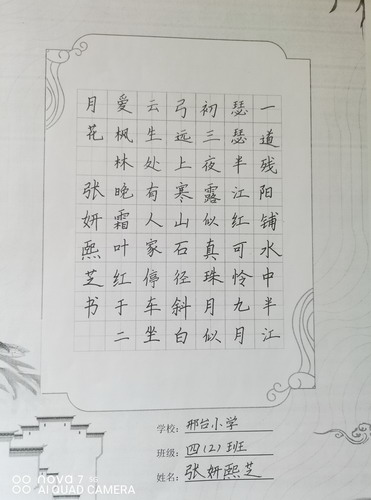 一道残阳铺水中半江
瑟瑟半江红可怜九月
初三夜露似真珠月似
弓远上寒山石径斜白
云生处有人家停车坐
爱枫林晚霜叶红于二
月花 张妍熙芝书
学校：邢台小学
班级：四(2)班
姓名：张妍熙芝
nova 7
AI QUAD CAMERA